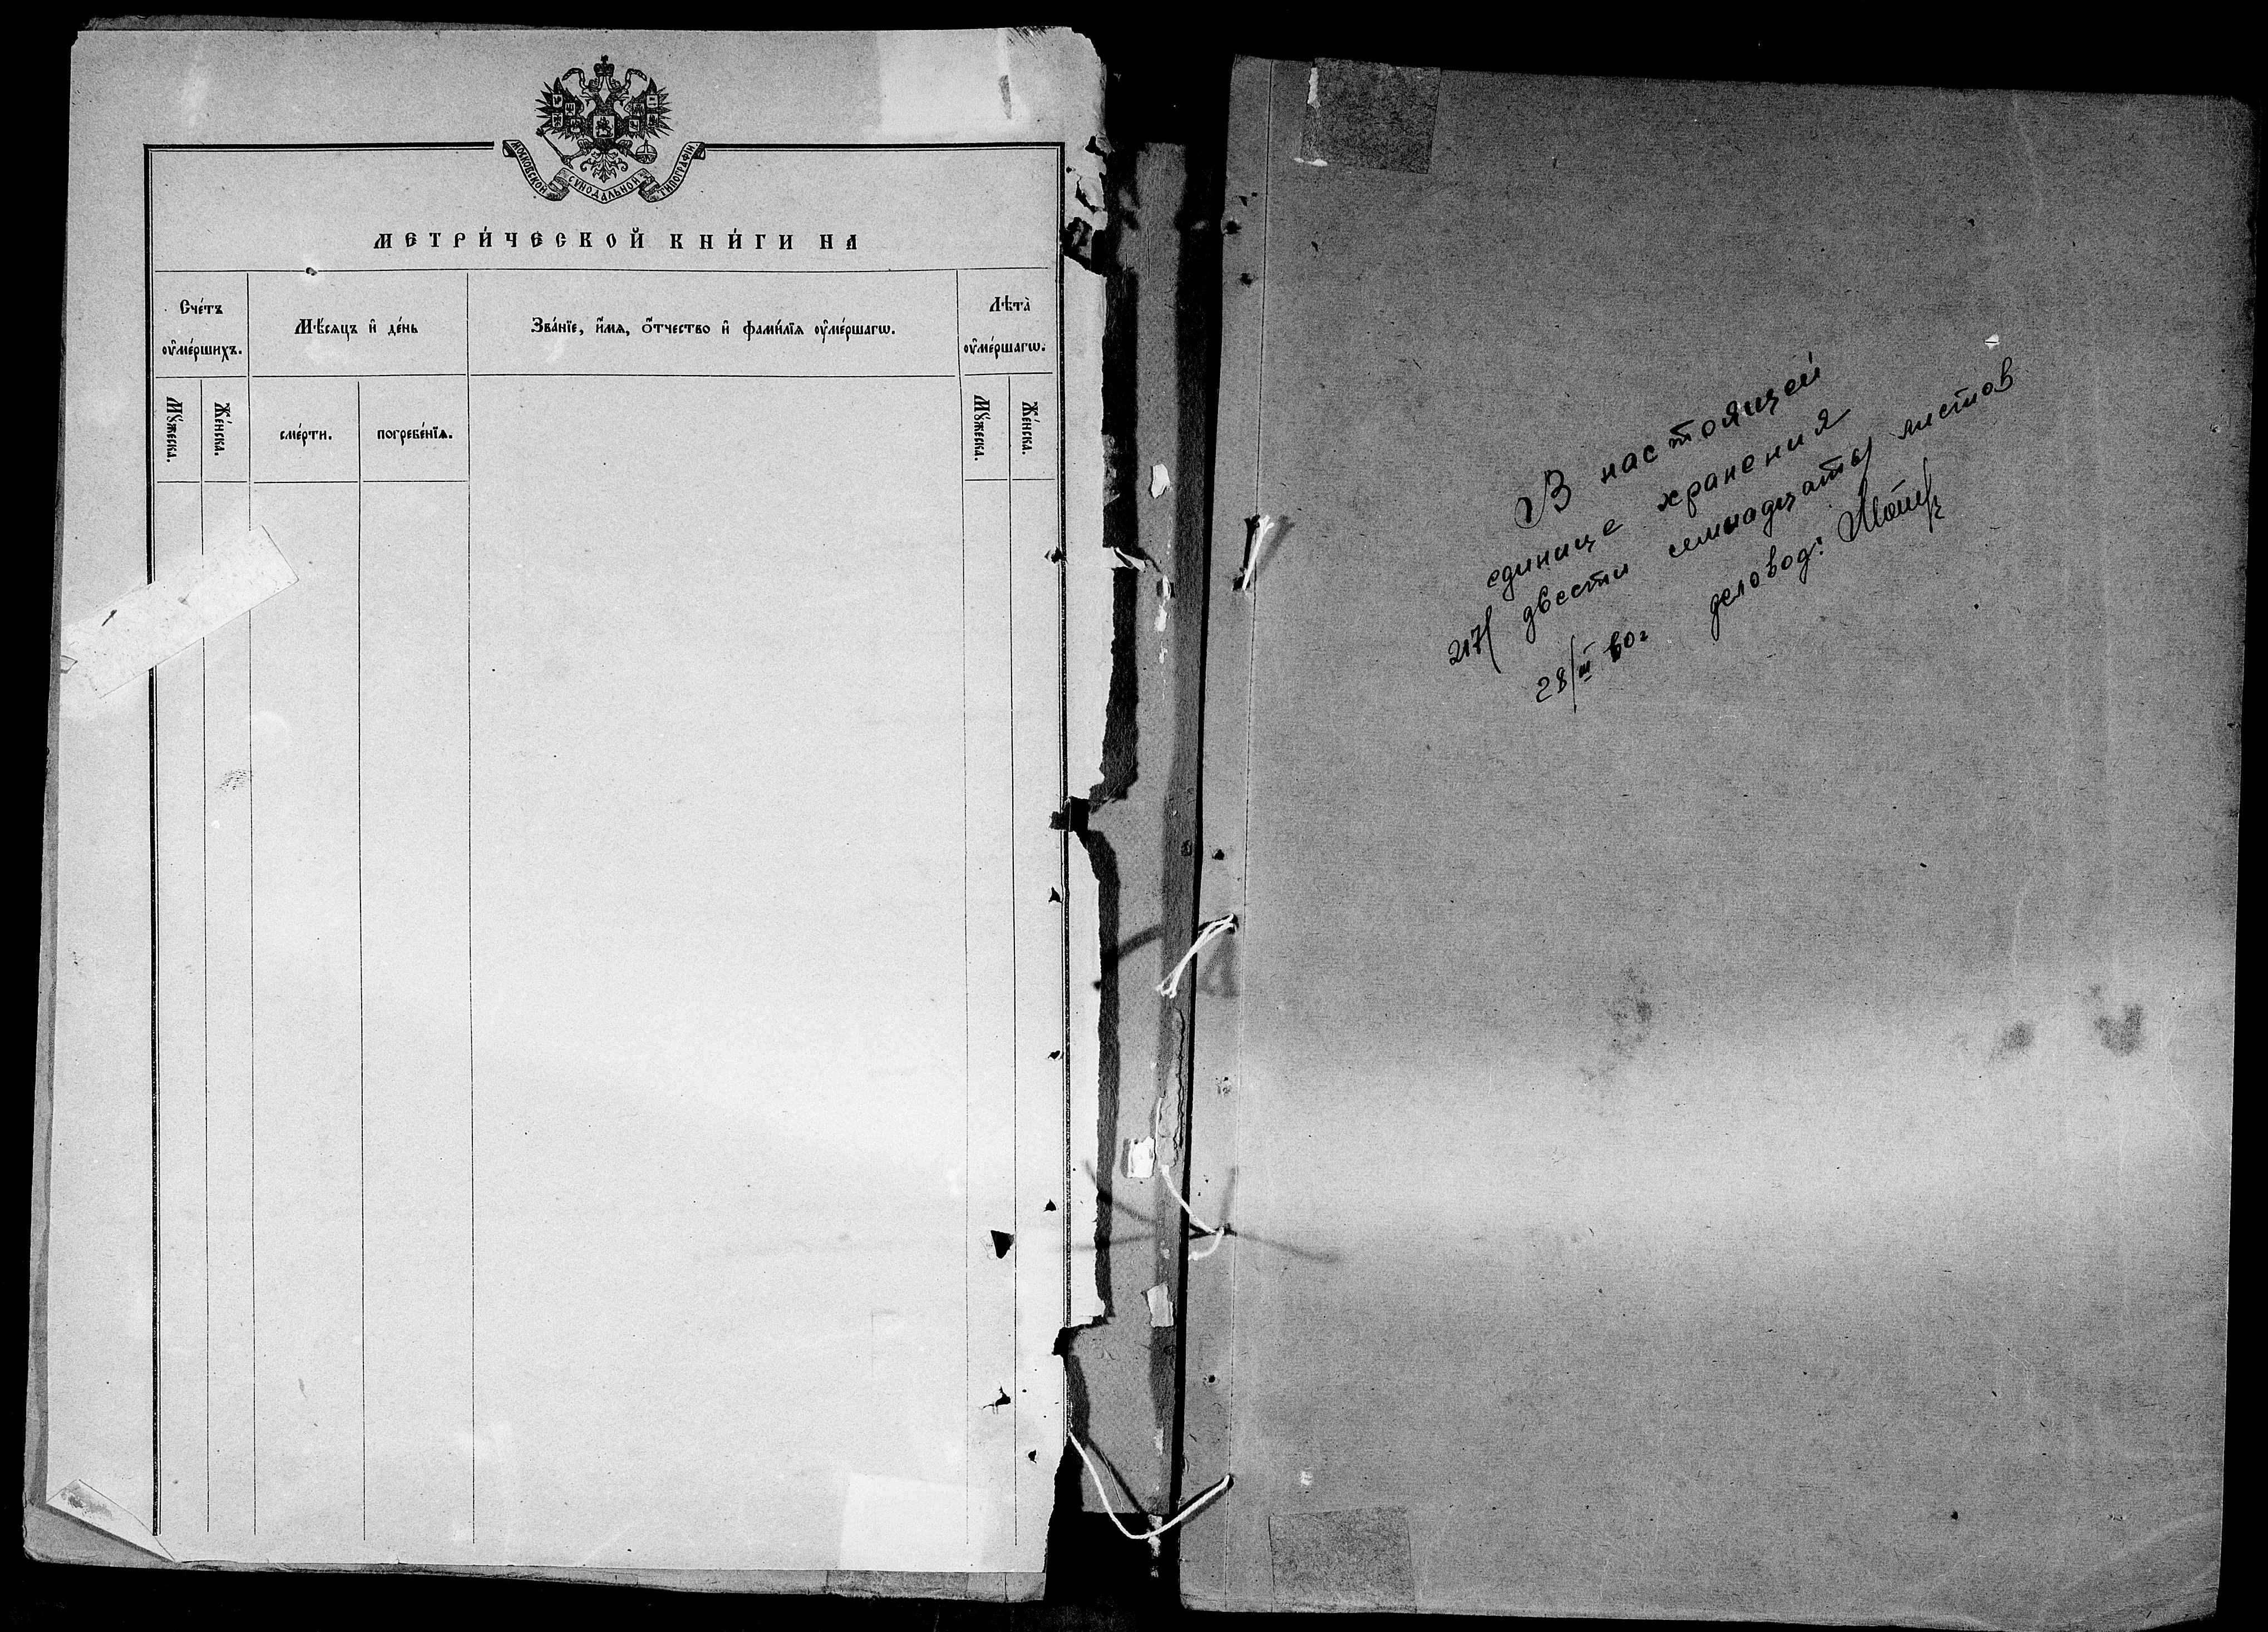 МОСКОВСКОЙ СѴНОДАЛЬНОЙ ТИПОГРАФІИ
МЕТРИ́ЧЕСКОЙ КНИ́ГИ НА
Сче́тъ ᲂу҆ме́ршихъ.
Мѣ́сяцъ и҆ де́нь
Зва́нїе, и҆́мя, ѻ҆́тчество и҆ фами́лїя ᲂу҆ме́ршагѡ.
Лѣ́та ᲂу҆ме́ршагѡ.
Мꙋ́жеска.
Же́нска.
сме́рти.
погребе́нїя.
Мꙋ́жеска.
Же́нска.
В настоящей
единице хранения
217/ двести семнадцать листов
28/III 60г деловод: